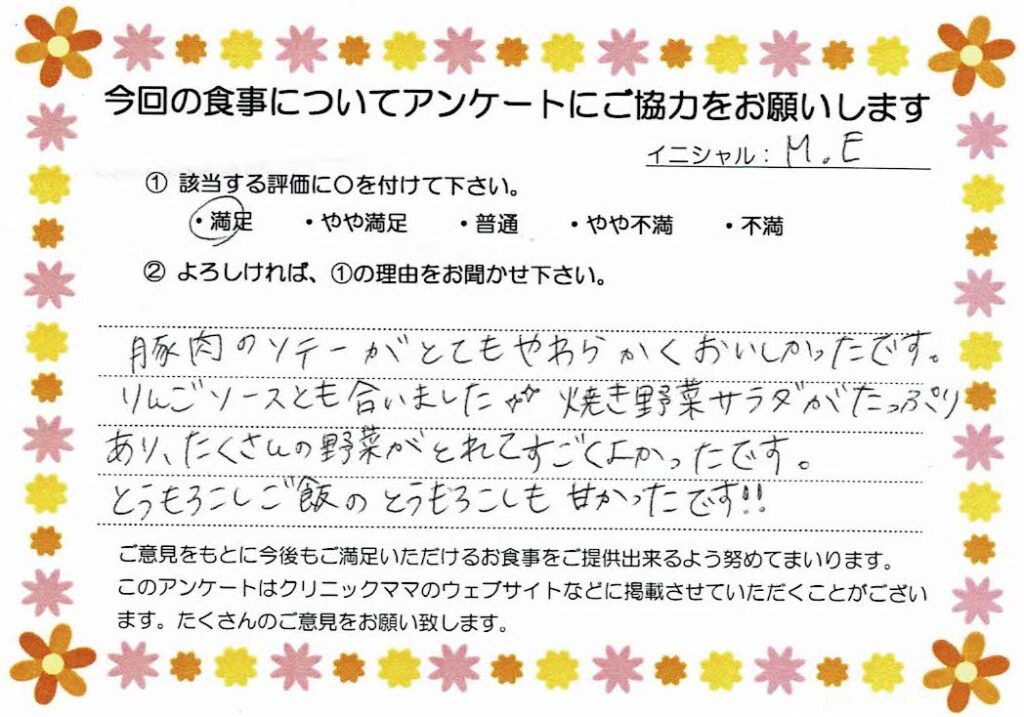 今回の食事についてアンケートにご協力をお願いします
イニシャル：M.E
① 該当する評価に〇を付けて下さい。
・満足 ・やや満足 ・普通 ・やや不満 ・不満
② よろしければ、①の理由をお聞かせ下さい。
豚肉のソテーがとてもやわらかくおいしかったです。
りんごソースとも合いました♡♡ 焼き野菜サラダがたっぷり
あり、たくさんの野菜がとれてすごくよかったです。
とうもろこしご飯のとうもろこしも甘かったです!!
ご意見をもとに今後もご満足いただけるお食事をご提供出来るよう努めてまいります。
このアンケートはクリニックママのウェブサイトなどに掲載させていただくことがござい
ます。たくさんのご意見をお願い致します。